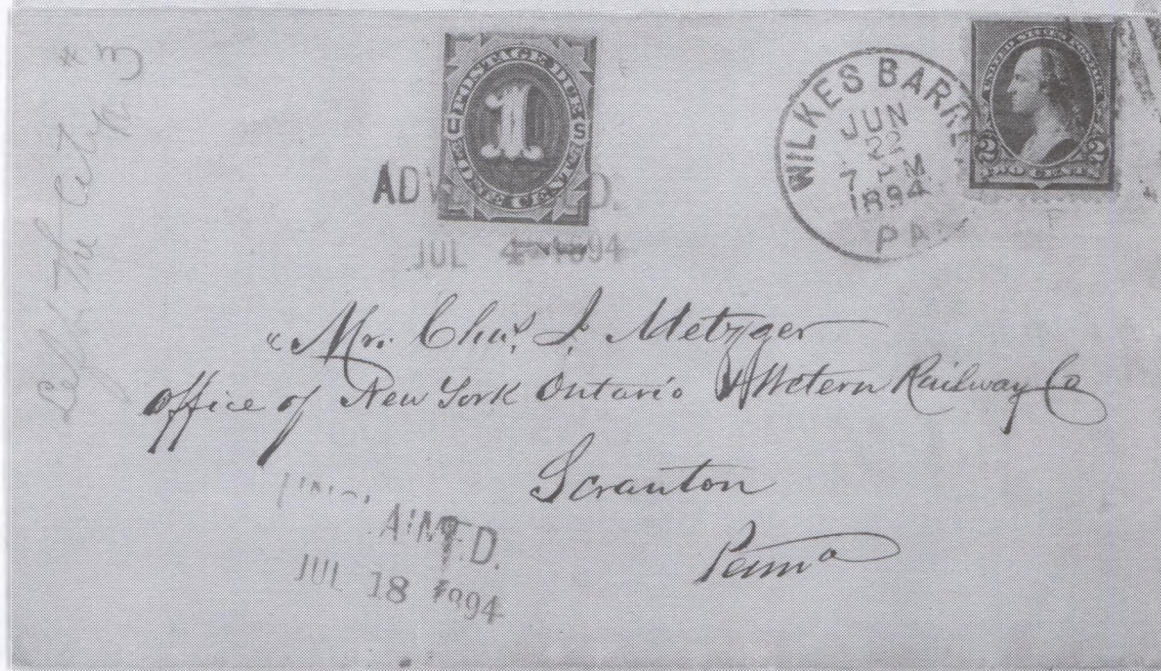 Left the City #3
POSTAGE DUE
U 1 S
ONE CENT
ADV ED.
JUL 4 1894
WILKES BARRE
JUN
22
7 PM
1894
PA.
UNITED STATES POSTAGE
2 2
TWO CENTS
Mr. Chas. J. Metzger
Office of New York Ontario & Wetern Railway Co
Scranton
Penna
UNCLAIMED.
JUL 18 1894